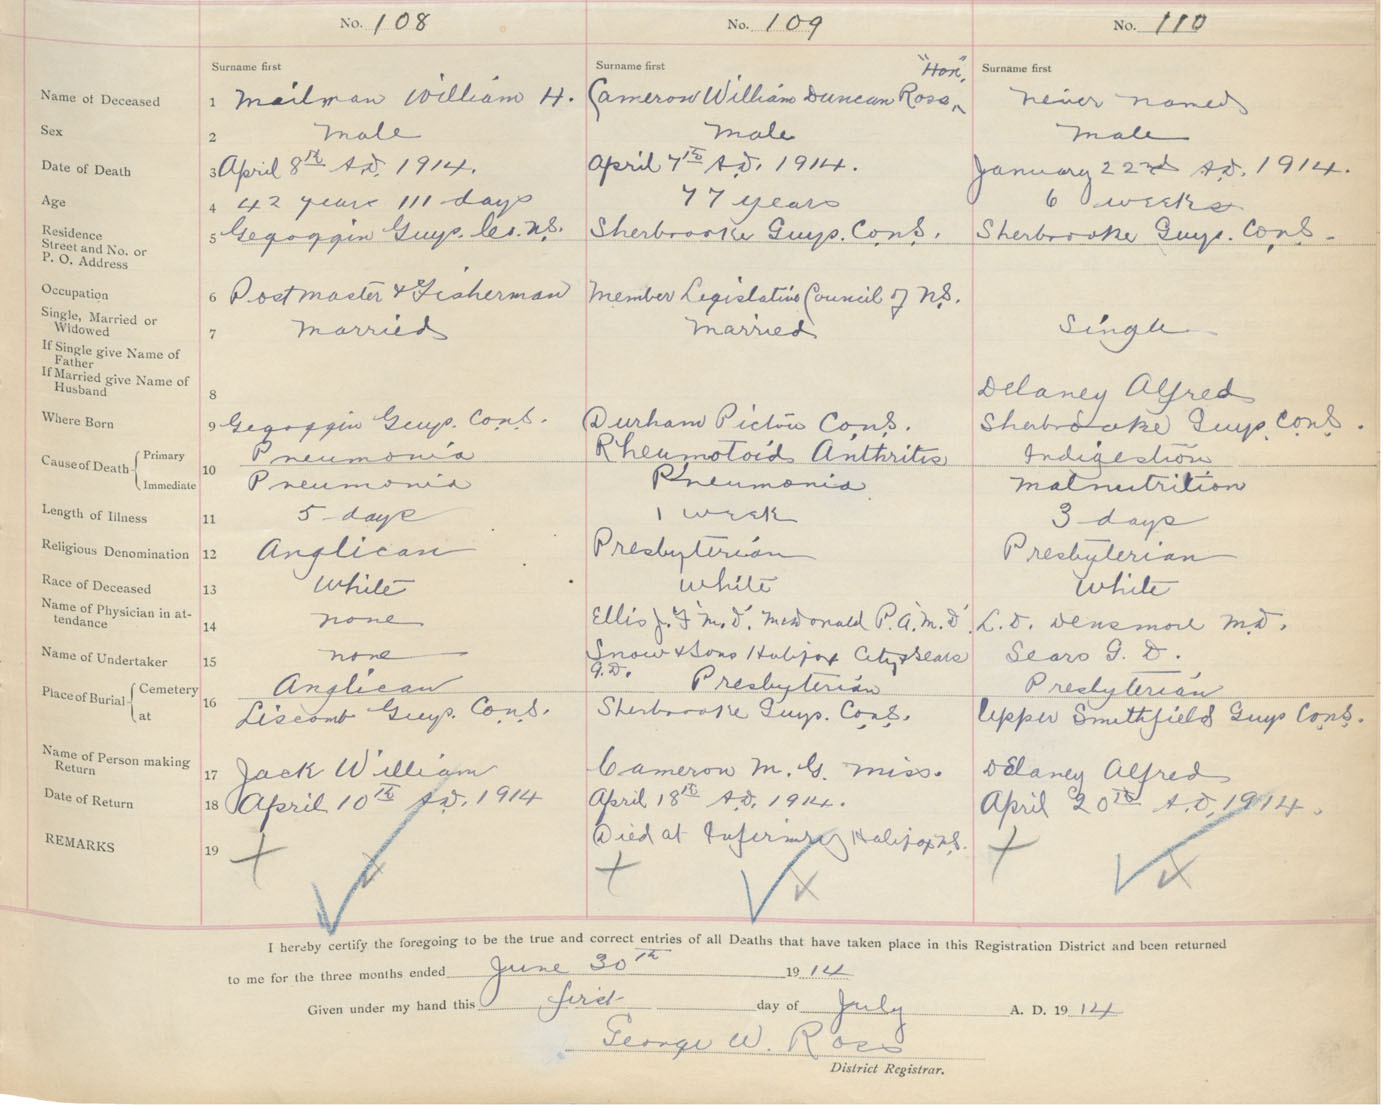 No. 108 No. 109 No. 110
Surname first Surname first "Hon", Surname first
Name of Deceased 1 Mailman William H. Cameron William Duncan Ross ^ never named
Sex 2 Male Male Male
Date of Death 3 April 8th A.D. 1914. April 7th A.D. 1914. January 22nd A.D. 1914.
Age 4 42 years 111 days 77 years 6 weeks
Residence
Street and No. or
P. O. Address 5 Gegoggin Guys. Co. N.S. Sherbrooke Guys. Co. N.S. Sherbrooke Guys. Co. N.S.
Occupation 6 Postmaster & Fisherman Member Legislative Council of N.S.
Single, Married or
Widowed 7 Married Married Single
If Single give Name of
Father
If Married give Name of
Husband 8 Delaney Alfred
Where Born 9 Gegoggin Guys. Co N.S. Durham Pictou Co. N.S. Sherbrooke Guys. Co N.S.
Cause of Death Primary 10 Pneumonia Rheumotoid Anthritis Indigestion
Immediate Pneumonia Pneumonia Malnutrition
Length of Illness 11 5 days 1 week 3 days
Religious Denomination 12 Anglican Presbyterian Presbyterian
Race of Deceased 13 White White White
Name of Physician in at-
tendance 14 none Ellis J. F. M.D. McDonald P. A. M.D. L. D. Densmore M.D.
Name of Undertaker 15 none Snow & Sons Halifax City & Sears
G. D. Sears G. D.
Place of Burial Cemetery 16 Anglican Presbyterian Presbyterian
at Liscomb Guys. Co N.S. Sherbrooke Guys. Co N.S. Upper Smithfield Guys Co N.S.
Name of Person making
Return 17 Jack William Cameron M. G. Miss. Delaney Alfred
Date of Return 18 April 10th A.D. 1914 April 18th A.D. 1914. April 20th A.D. 1914.
REMARKS 19 Died at Infirmry Halifax N.S.
I hereby certify the foregoing to be the true and correct entries of all Deaths that have taken place in this Registration District and been returned
to me for the three months ended June 30th 1914
Given under my hand this first day of July A. D. 1914
George W. Ross
District Registrar.